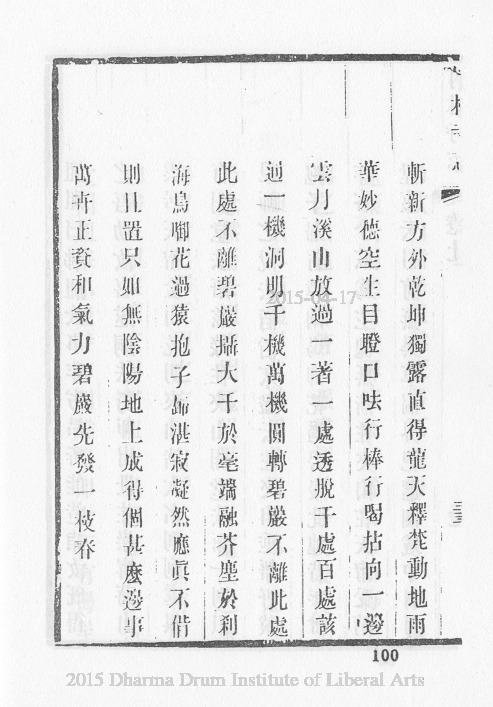 斬新方外乾坤獨露直得龍天釋梵動地雨
華妙德空生目瞪口呿行棒行喝拈向一邊
雲月溪山放過一著一處透脫千處百處該
過一機洞明千機萬機圓轉碧巖不離此處
此處不離碧巖攝大千於毫端融芥塵於利
海鳥啣花過猿抱子歸湛寂凝然應眞不借
則且置只如無陰陽地上成得個甚麼邊事
萬卉正資和氣力碧巖先發一枝春
100
2015-04-17
2015 Dharma Drum Institute of Liberal Arts